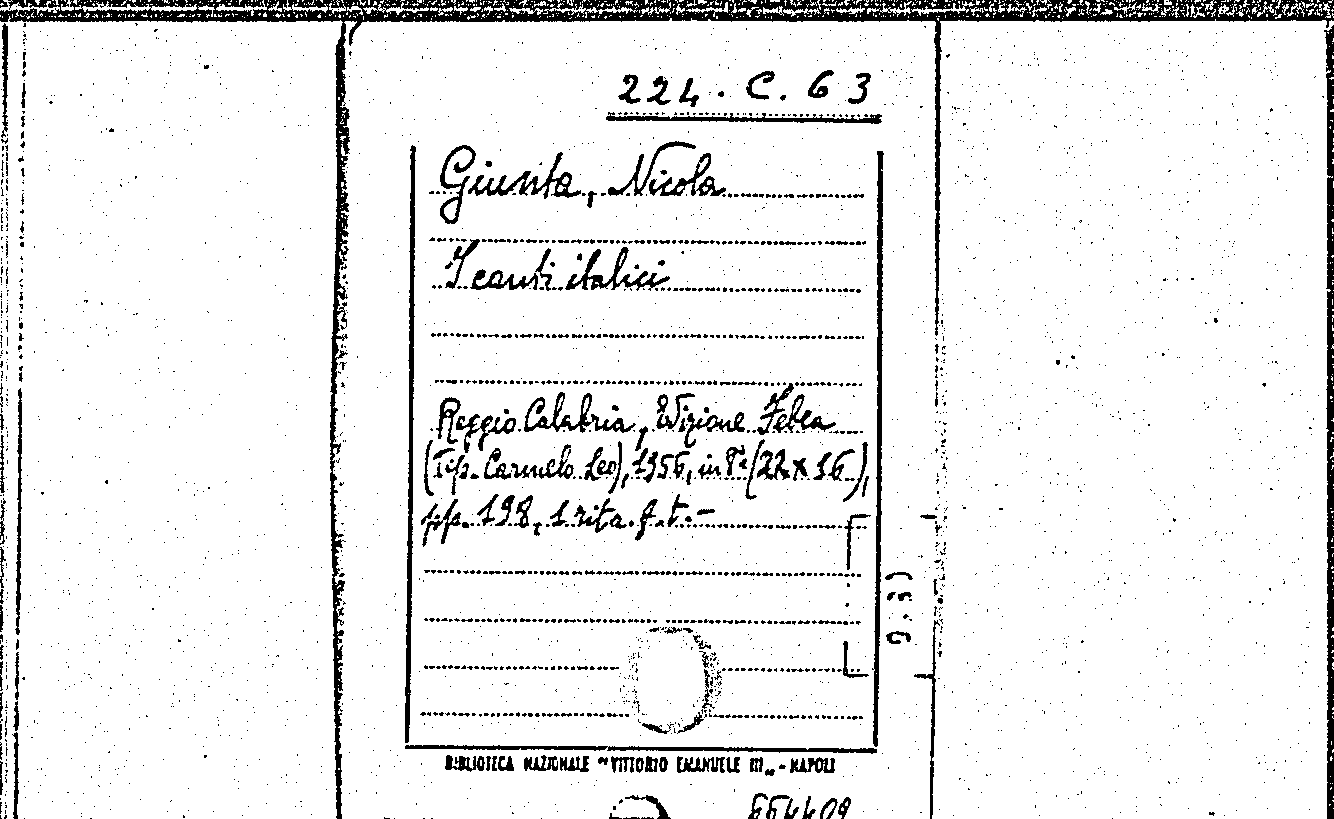 224. C. 63
Giunta, Nicola
I canti italici
Reggio Calabria, Edizione Febea
(Tip. Carmelo Leo), 1956, in 8° (22 x 16),
pp. 198, 1 rit. f. t. -
BIBLIOTECA NAZIONALE "VITTORIO EMANUELE III„ - NAPOLI